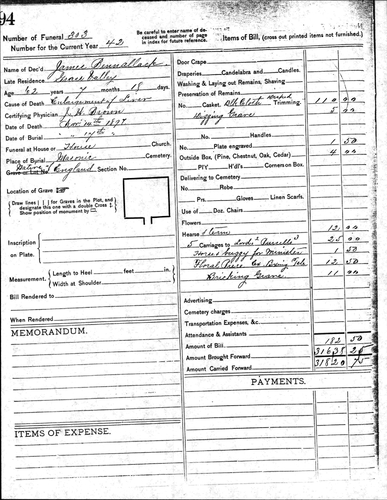 94
Number of Funeral 203
Number for the Current Year 42
Be carefull to enter name of deceased and number of page in index for future reference.
Items of Bill, (cross out printed items not furnished.)
Name of Dec'd. James
Late Residence Grass Valley
Age 62 years 7 months 18 days.
Cause of Death of Liver
Certifying Physician
Date of Death Nov. 1897
Date of Burial " 17th "
Funeral at House or Church.
Place of Burial Masonic Cemetery.
Native of England Section No.
Location of Grave
Draw lines [ ] for Graves in the Plat, and designate this one with a double Cross
Show position of monument by
Inscription on Plate.
Measurement, Length to Heel feet in.
Width at Shoulder
Bill Rendered to
When Rendered
MEMORANDUM.
ITEMS OF EXPENSE.
Door Crape
Draperies Candelabra and Candles.
Washing & Laying out Remains, Shaving
Presentation of Remains
No. Casket, Blk Cloth Draped Trimming. 110 00
Digging Grave 5 00
No. Handles
Plate engraved 1 50
Outside Box (Pine, Chestnut, Oak, Cedar) 4 00
No. P'T'Y H'd's Corners on Box.
Delivering to Cemetery
No. Robe
Prs. Gloves Linen Scarfs.
Use of Doz. Chairs
Flowers
Hearse 12 00
5 Carriages to 25 00
Horse & buggy for Minister 1 50
Floral Piece 12 50
Bricking Grave 11 00
Advertising
Cemetery charges
Transportation Expenses, &c
Attendance & Assistants
Amount of Bill 182 50
Amount Brought Forward 31638 25
Amount Carried Forward 31820 75
PAYMENTS.